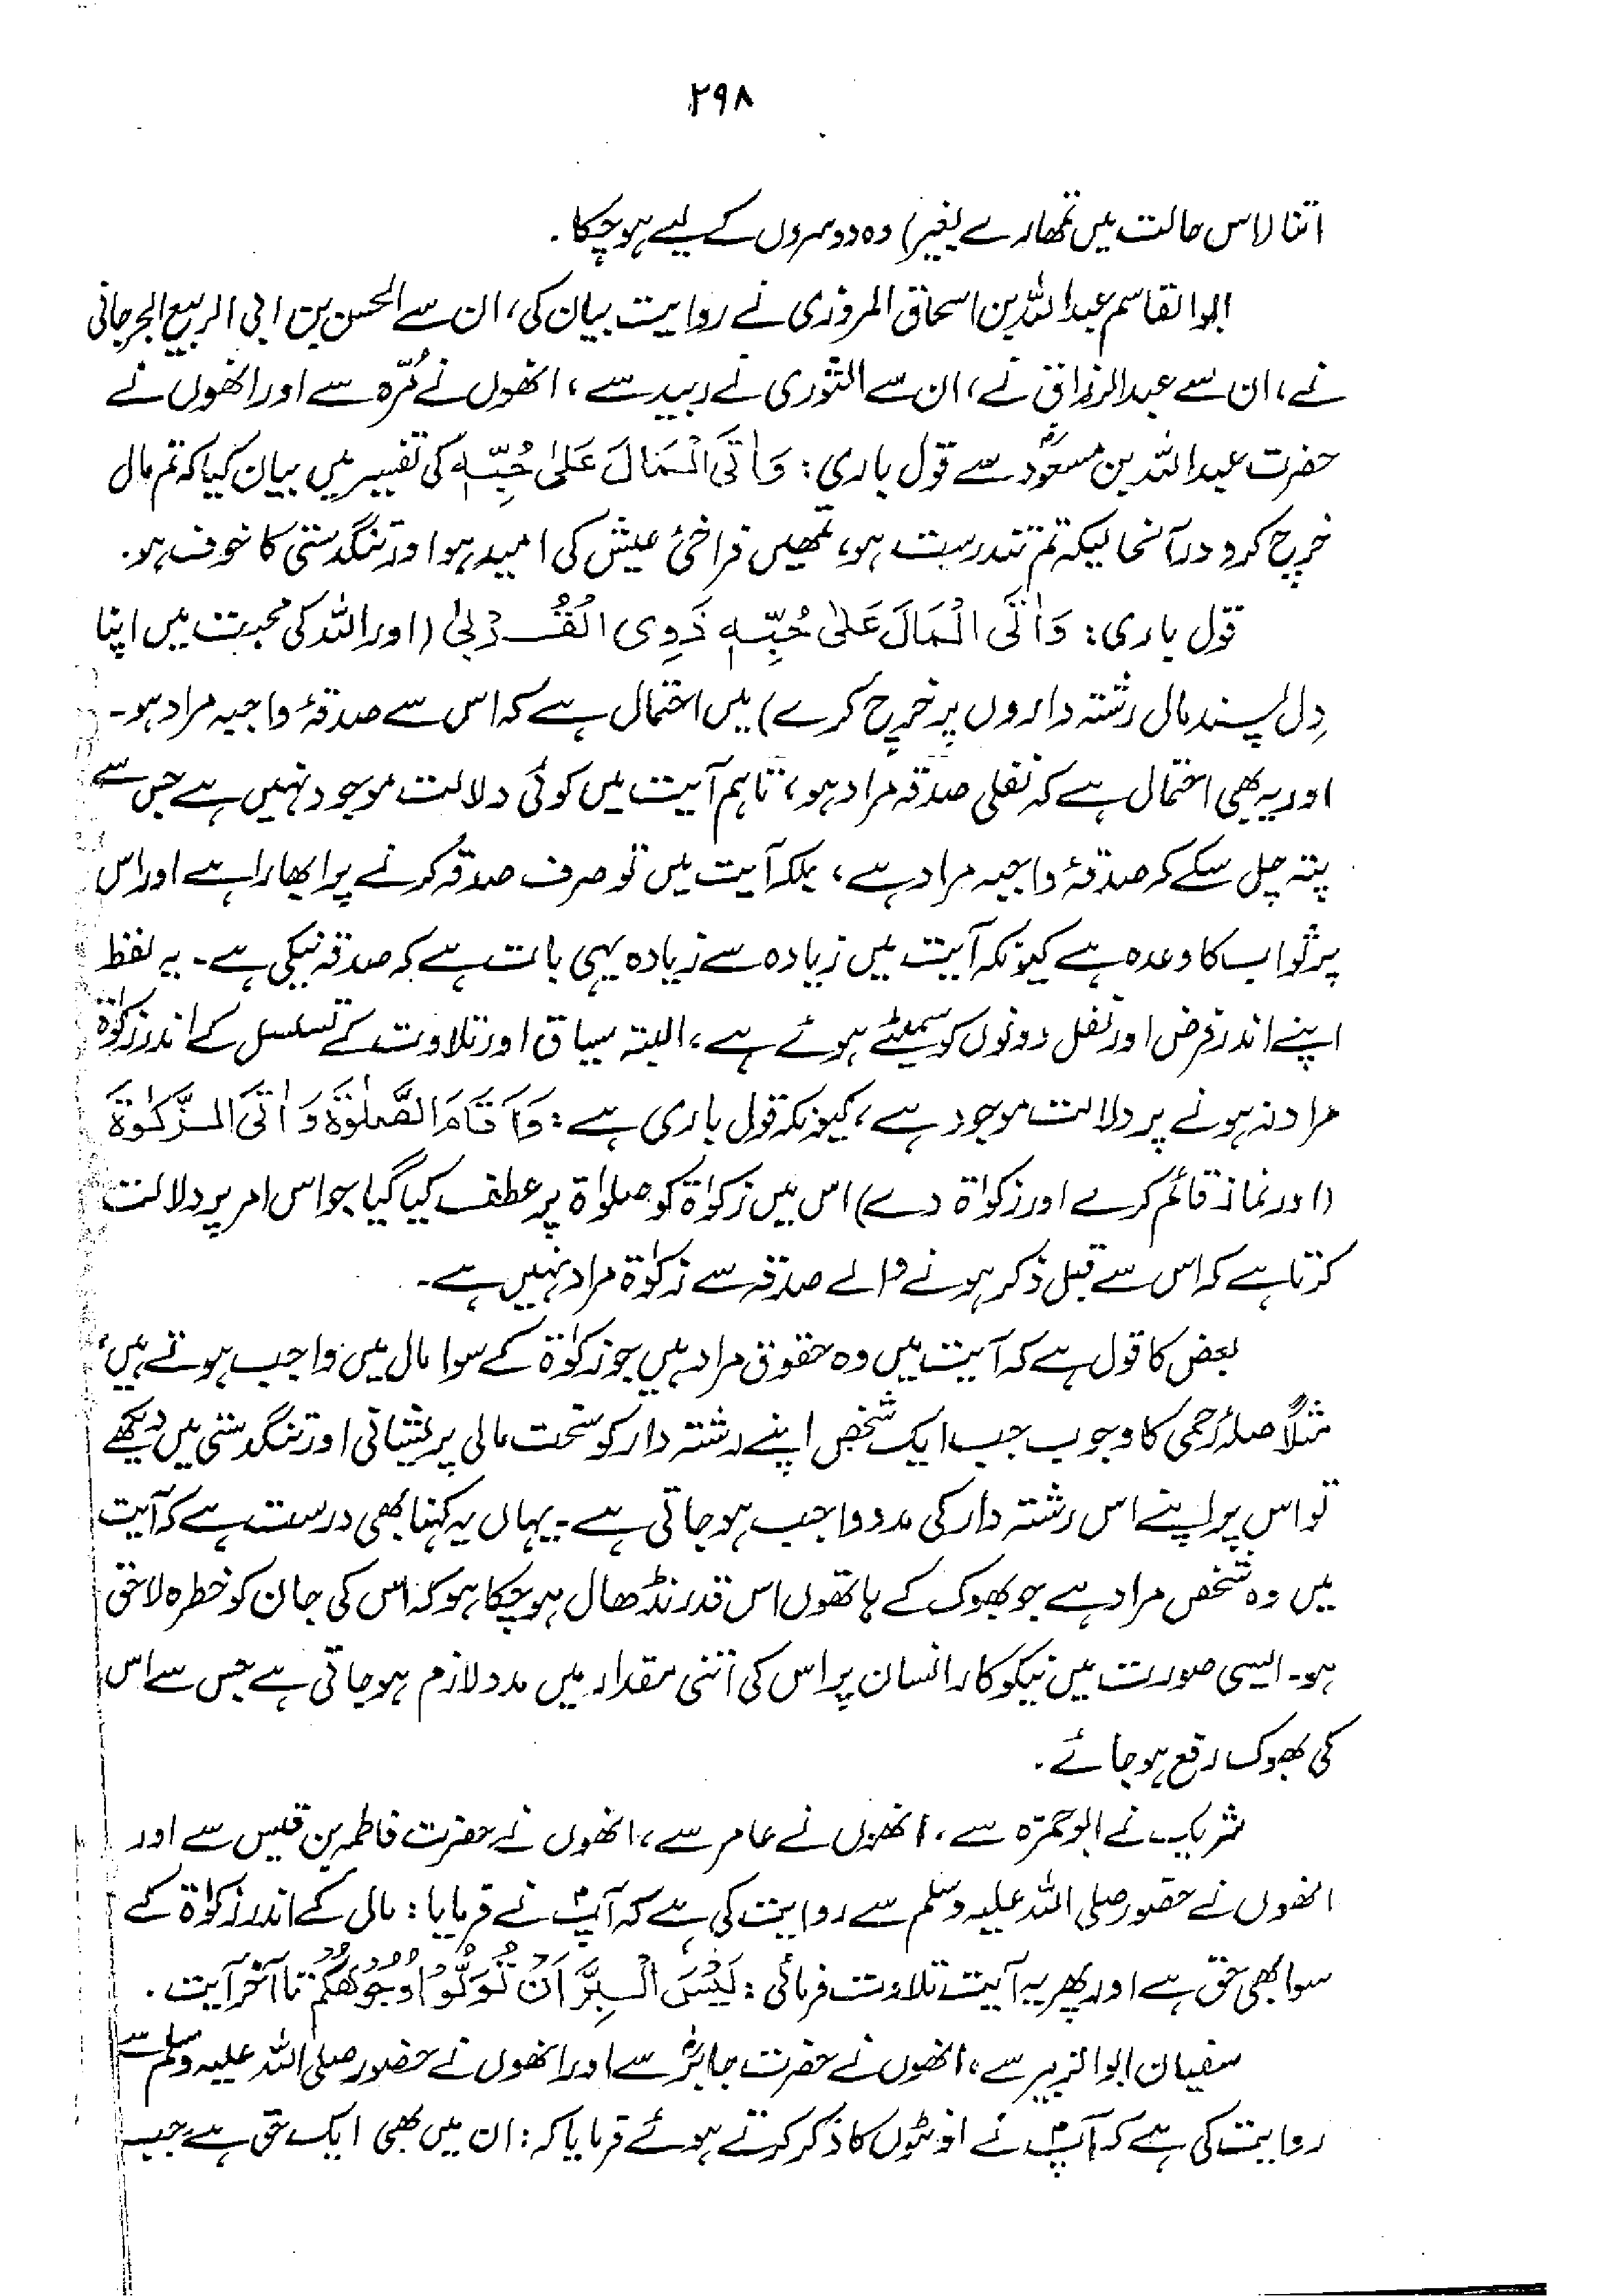 ۲۹۸
اتنا (اس حالت میں تمھارے بغیر) وہ دوسروں کے لیے ہو چکا۔
ابوالقاسم عبداللہ بن اسحاق المروزی نے روایت بیان کی، ان سے الحسن بن ابی الربیع الجرجانی
نے، ان سے عبدالرزاق نے، ان سے الثوری نے زبید سے، انھوں نے مُرّہ سے اور انھوں نے
حضرت عبداللہ بن مسعودؓ سے قول باری: وَاٰتَی الْمَالَ عَلٰی حُبِّہٖ کی تفسیر میں بیان کیا کہ تم مال
خرچ کرو درآنحالیکہ تم تندرست ہو، تمھیں فراخیٔ عیش کی امید ہو اور تنگدستی کا خوف ہو۔
قول باری: وَاٰتَی الْمَالَ عَلٰی حُبِّہٖ ذَوِی الْقُرْبٰی (اور اللہ کی محبت میں اپنا
دِل پسند مال رشتہ داروں پر خرچ کرے) میں احتمال ہے کہ اس سے صدقۂ واجبہ مراد ہو۔
اور یہ بھی احتمال ہے کہ نفلی صدقہ مراد ہو، تاہم آیت میں کوئی دلالت موجود نہیں ہے جس سے
پتہ چل سکے کہ صدقۂ واجبہ مراد ہے، بلکہ آیت میں تو صرف صدقہ کرنے پر ابھارا ہے اور اس
پر ثواب کا وعدہ ہے کیونکہ آیت میں زیادہ سے زیادہ یہی بات ہے کہ صدقہ نیکی ہے۔ یہ لفظ
اپنے اندر فرض اور نفل دونوں کو سمیٹے ہوئے ہے، البتہ سیاق اور تلاوت کے تسلسل کے اندر زکوٰۃ
مراد نہ ہونے پر دلالت موجود ہے، کیونکہ قول باری ہے: وَاَقَامَ الصَّلٰوۃَ وَاٰتَی الزَّکٰوۃَ
(اور نماز قائم کرے اور زکوٰۃ دے) اس میں زکوٰۃ کو صلوٰۃ پر عطف کیا گیا جو اس امر پر دلالت
کرتا ہے کہ اس سے قبل ذکر ہونے والے صدقہ سے زکوٰۃ مراد نہیں ہے۔
بعض کا قول ہے کہ آیت میں وہ حقوق مراد ہیں جو زکوٰۃ کے سوا مال میں واجب ہوتے ہیں،
مثلاً صلۂ رحمی کا وجوب جب ایک شخص اپنے رشتہ دار کو سخت مالی پریشانی اور تنگدستی میں دیکھے
تو اس پر اپنے اس رشتہ دار کی مدد واجب ہو جاتی ہے۔ یہاں یہ کہنا بھی درست ہے کہ آیت
میں وہ شخص مراد ہے جو بھوک کے ہاتھوں اس قدر نڈھال ہو چکا ہو کہ اس کی جان کو خطرہ لاحق
ہو۔ ایسی صورت میں نیکوکار انسان پر اس کی اتنی مقدار میں مدد لازم ہو جاتی ہے جس سے اس
کی بھوک رفع ہو جائے۔
شریک نے ابوحمزہ سے، انھوں نے عامر سے، انھوں نے حضرت فاطمہ بن قیس سے اور
انھوں نے حضور صلی اللہ علیہ وسلم سے روایت کی ہے کہ آپؐ نے فرمایا: مال کے اندر زکوٰۃ کے
سوا بھی حق ہے اور پھر یہ آیت تلاوت فرمائی: لَیْسَ الْبِرَّ اَنْ تُوَلُّوْا وُجُوْھَکُمْ تا آخر آیت۔
سفیان ابوالزبیر سے، انھوں نے حضرت جابرؓ سے اور انھوں نے حضور صلی اللہ علیہ وسلم سے
روایت کی ہے کہ آپؐ نے اونٹوں کا ذکر کرتے ہوئے فرمایا کہ: ان میں بھی ایک حق ہے جب